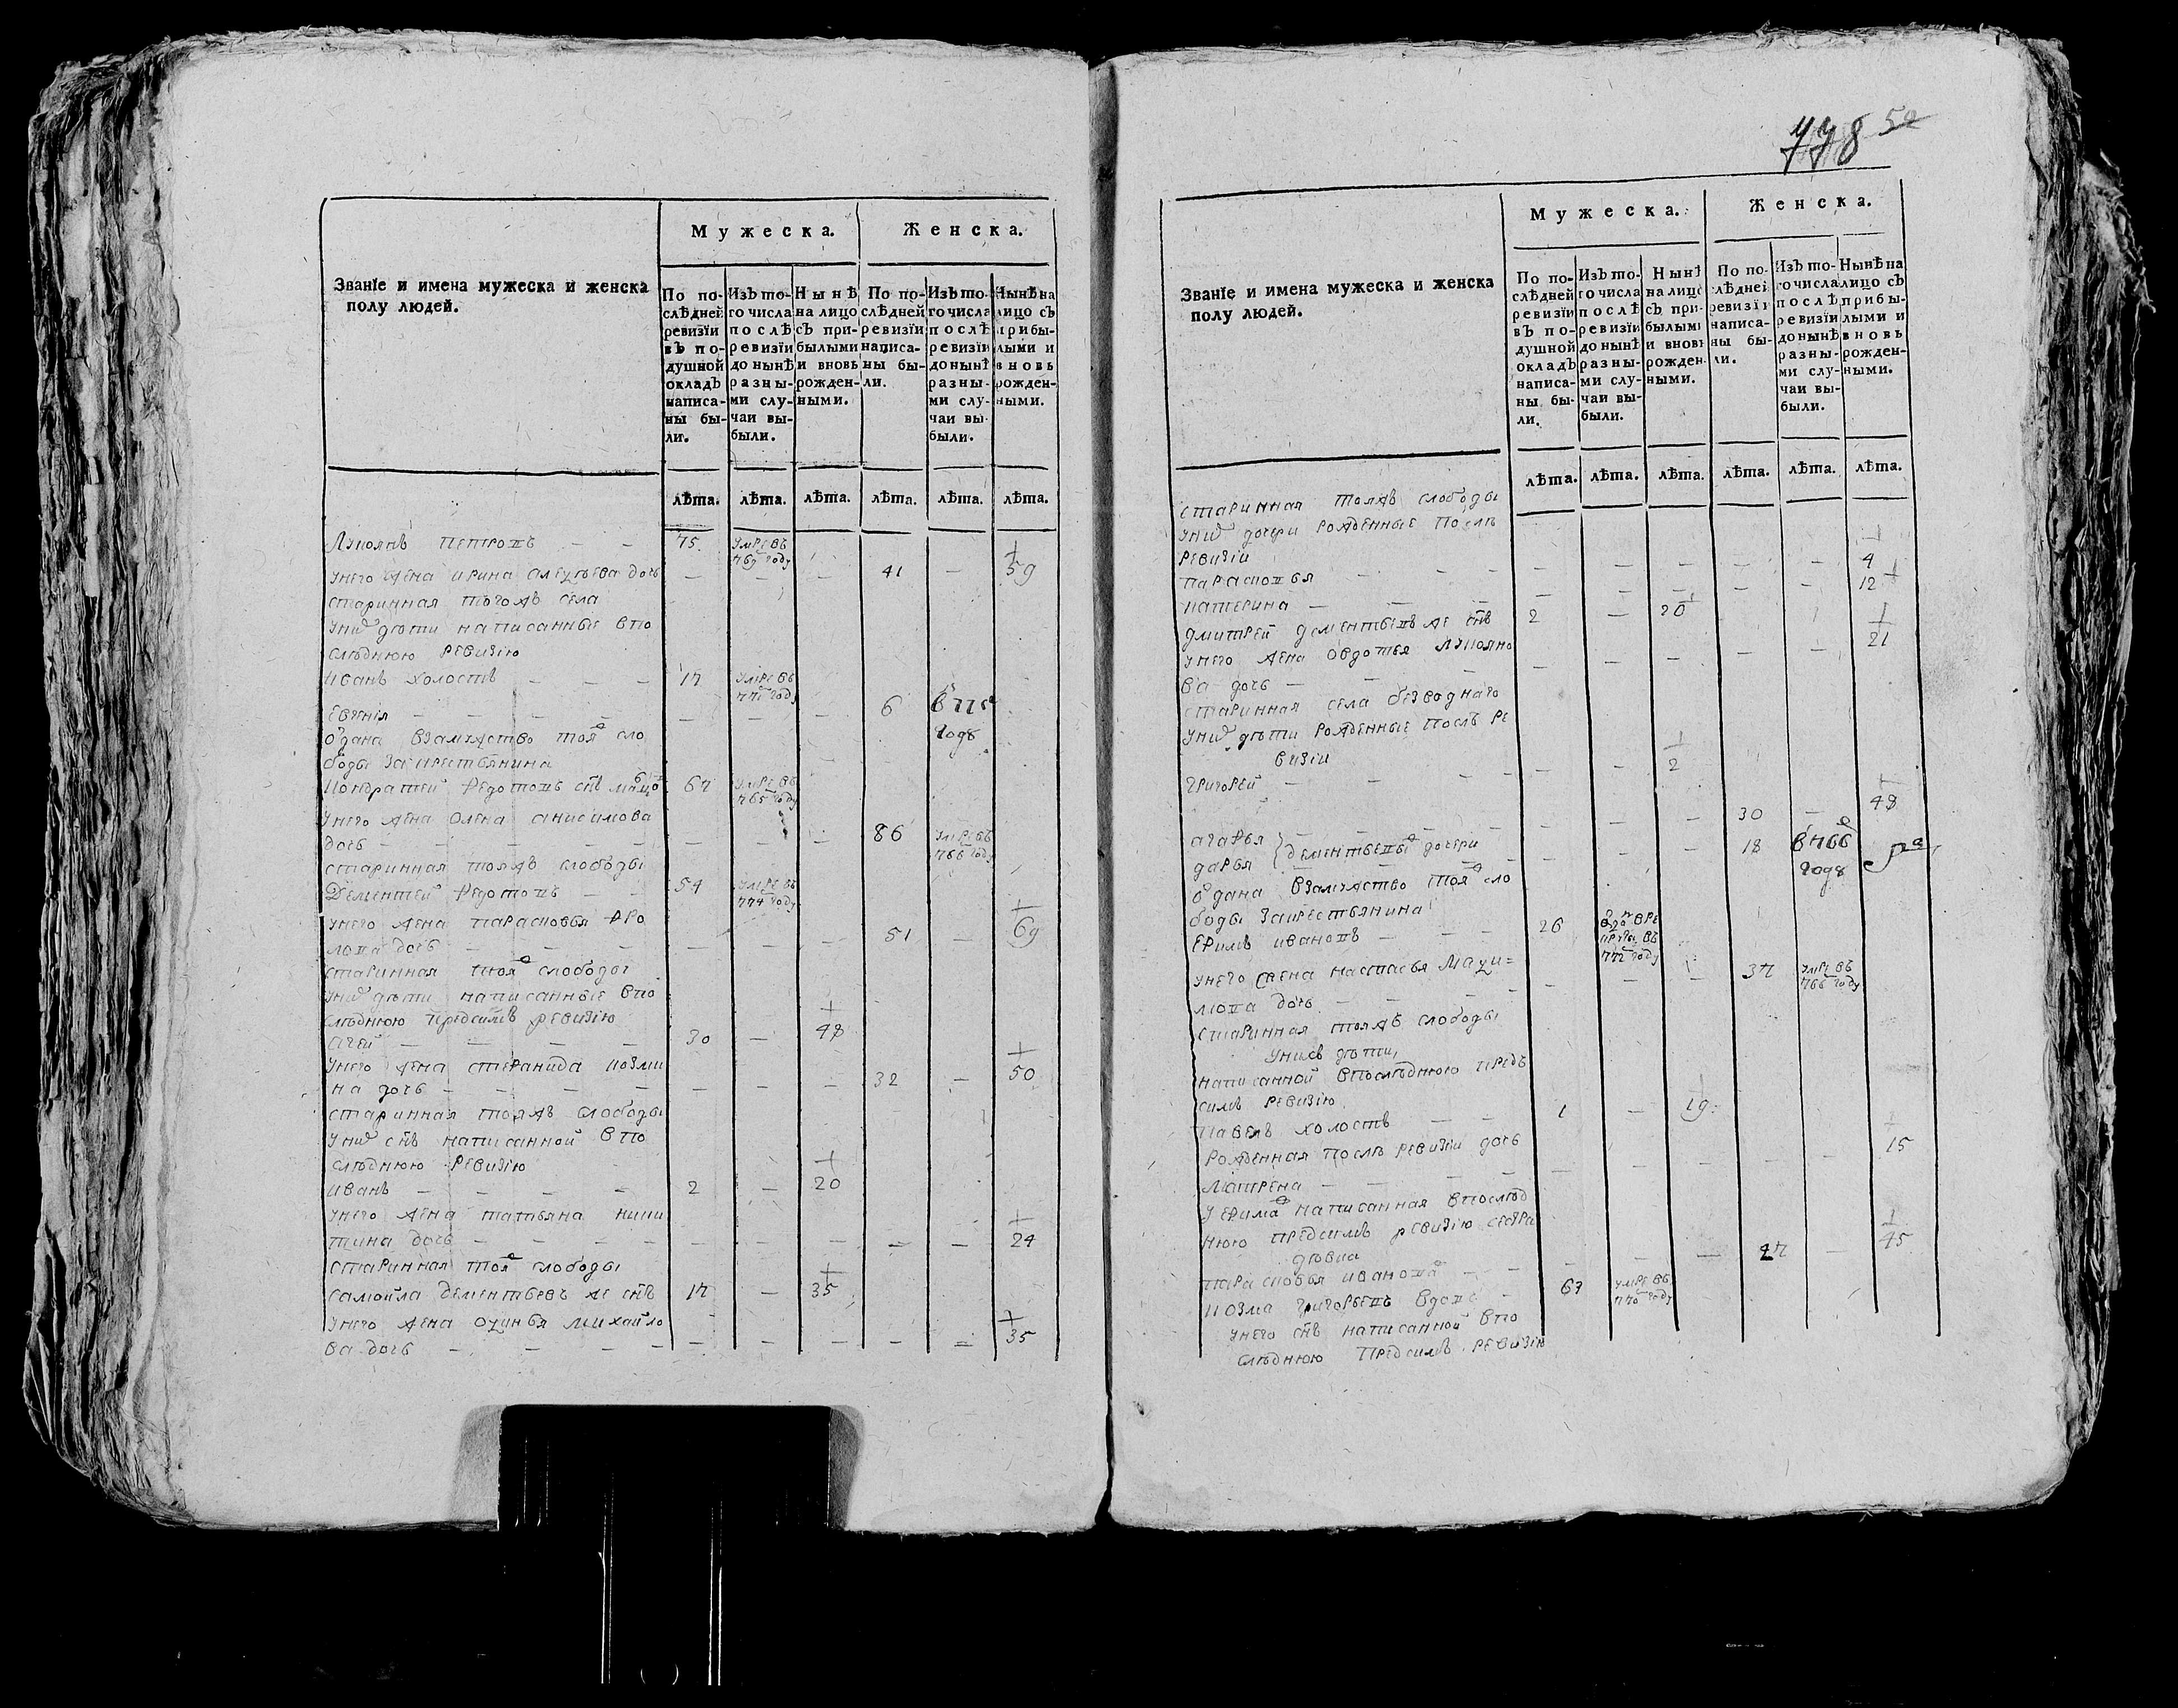 778 52
Званїе и имена мужеска и женска полу людей.
Мужеска. Женска.
По последней ревизїи въ подушной окладъ написаны были.
Изъ того числа послѣ ревизїи до нынѣ разными случаи выбыли.
Нынѣ на лицо съ прибылыми и вновь рожденными.
По последней ревизїи написаны были.
Изъ того числа послѣ ревизїи до нынѣ разными случаи выбыли.
Нынѣ на лицо съ прибылыми и вновь рожденными.
лѣта. лѣта. лѣта. лѣта. лѣта. лѣта.
Лукоянъ Петровъ — — 75. умре въ 769 году
у него жена Ирина Алеѯѣева дочь — — — 41 — 59
старинная тогожъ села
у них дѣти написанные в по
слѣднюю ревизію
Иванъ холостъ — — — 17 умре въ году
Евгенія — — — — — — — 6 в
одана взамужство тоя сло году
боды за крестьянина
Кондратей Федотовъ снъ 67 умре въ 765 году
у него жена Олена Анисимова
дочь — — — — — — — 86 умре въ 766 году
старинная тояжъ слободы
Дементей Федотовъ — — 54 умре въ 774 году
у него жена Парасковья Фро
лова дочь — — — — — — 51 — 69
старинная тоя слободы
у них дѣти написанные в по
слѣднюю пред симъ ревизію
Агей — — — — 30 — 48
у него жена Стефанида Козми
на дочь — — — — — — 32 — 50
старинная тояжъ слободы
у них снъ написанной в по
слѣднюю ревизію
Иванъ — — — — 2 — 20
у него жена Татьяна Ники
тина дочь — — — — — — — — 24
старинная тоя слободы
Самойла Дементьевъ же снъ 17 — 35
у него жена Акинья Михайло
ва дочь — — — — — — — — 35
Званїе и имена мужеска и женска полу людей.
Мужеска. Женска.
По последней ревизїи въ подушной окладъ написаны были.
Изъ того числа послѣ ревизїи до нынѣ разными случаи выбыли.
Нынѣ на лицо съ прибылыми и вновь рожденными.
По последней ревизїи написаны были.
Изъ того числа послѣ ревизїи до нынѣ разными случаи выбыли.
Нынѣ на лицо съ прибылыми и вновь рожденными.
лѣта. лѣта. лѣта. лѣта. лѣта. лѣта.
старинная тояжъ слободы
у них дочери рожденные послѣ
ревизіи
Парасковья — — — — — — — 4
Катерина — — — — — — — 12
Дмитрей Дементьевъ же снъ 2 — 20
у него жена Овдотья Лукояно
ва дочь — — — — — — — 21
старинная села Безводнаго
у них дѣти рожденные послѣ ре
визіи
Григорей — — — — — 2
Агафья } — — — — — — 30 — 48
Дарья } Дементьевы дочери — — — 18 в 766
одана взамужство тоя сло году
боды за крестьянина
Ефимъ Ивановъ — — — 26 въ 772 году
у него жена Настасья
дочь — — — — — — 37 умре въ 766 году
старинная тояжъ слободы
у нихъ дѣти,
написанной в последнюю предъ
симъ ревизію
Павелъ холостъ — — 1 — 19.
рожденная послѣ ревизіи дочь
Матрена — — — — — — — — 15
у Ефима написанная в послѣд
нюю пред симъ ревизію сестра
девка
Парасковья Иванова — — — — — 27 — 45
Козма Григорьевъ вдовъ — 67 умре въ 770 году
у него снъ написанной в по
слѣднюю пред симъ ревизію